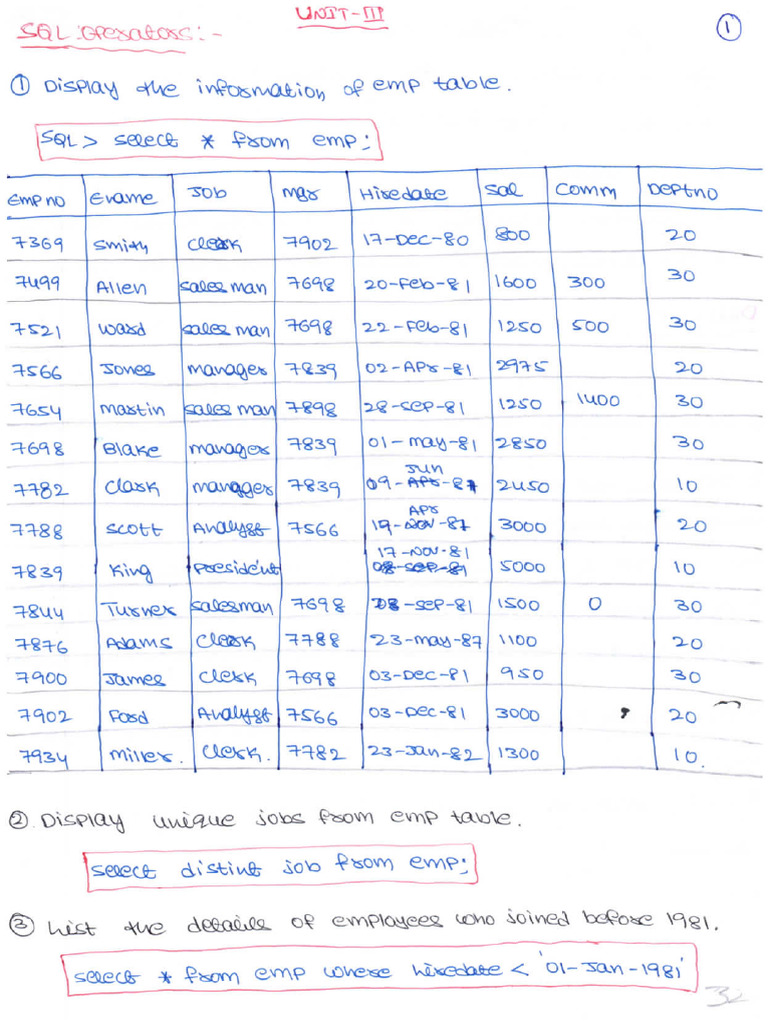 UNIT-III
SQL Operators:-
1
① Display the information of emp table.
SQL> select * from emp;
Empno Ename Job Mgr Hiredate Sal Comm Deptno
7369 Smith Clerk 7902 17-Dec-80 800 20
7499 Allen sales man 7698 20-Feb-81 1600 300 30
7521 Ward sales man 7698 22-Feb-81 1250 500 30
7566 Jones manager 7839 02-Apr-81 2975 20
7654 Martin sales man 7898 28-Sep-81 1250 1400 30
7698 Blake manager 7839 01-may-81 2850 30
7782 Clark manager 7839 09-Jun-81 2450 10
7788 Scott Analyst 7566 19-Apr-87 3000 20
7839 King President 17-Nov-81 5000 10
7844 Turner salesman 7698 08-Sep-81 1500 0 30
7876 Adams Clerk 7788 23-may-87 1100 20
7900 James Clerk 7698 03-Dec-81 950 30
7902 Ford Analyst 7566 03-Dec-81 3000 20
7934 Miller. Clerk. 7782 23-Jan-82 1300 10.
② Display unique jobs from emp table.
select distint job from emp;
③ List the details of employees who joined before 1981.
select * from emp where hiredate < '01-Jan-1981'
32